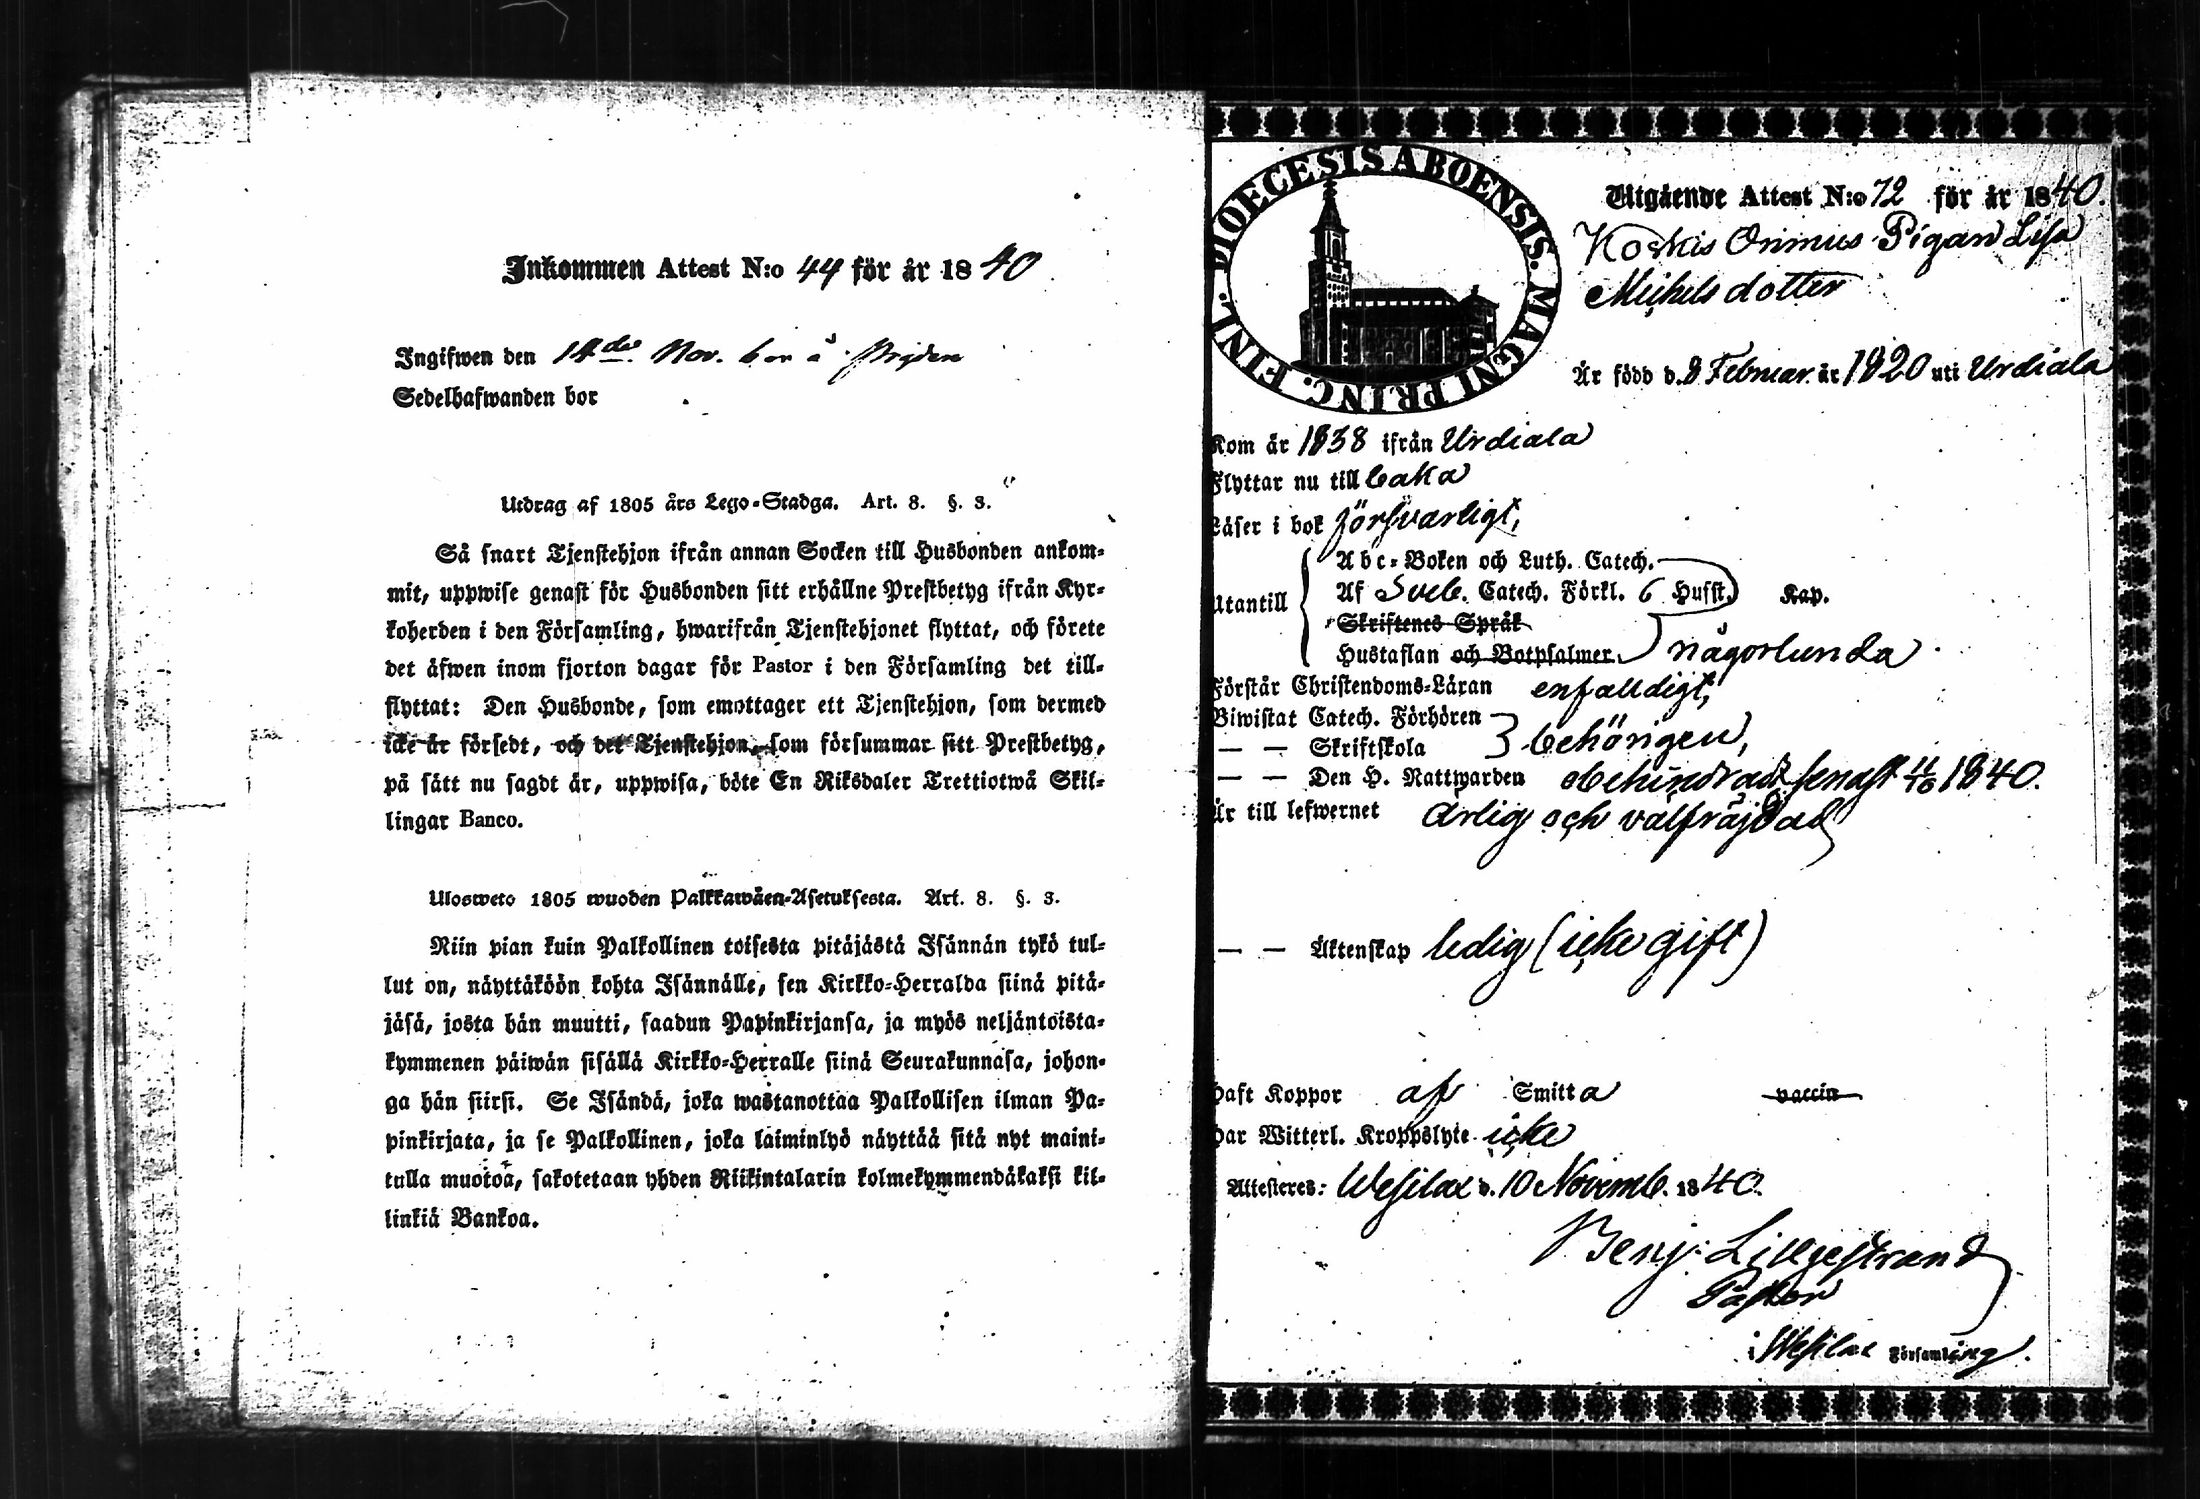 Inkommen Attest N:o 44 för år 1840
Ingifwen den 14de Nov. bor å
Sedelhafwanden bor
Utdrag af 1805 års Lego-Stadga. Art. 8. §. 3.
Så snart Tjenstehjon ifrån annan Socken till Husbonden ankom-
mit, uppwise genast för Husbonden sitt erhållne Prestbetyg ifrån Kyr-
koherden i den Församling, hwarifrån Tjenstehjonet flyttat, och förete
det äfwen inom fjorton dagar för Pastor i den Församling det till-
flyttat: Den Husbonde, som emottager ett Tjenstehjon, som dermed
icke är försedt, och det Tjenstehjon, som försummar sitt Prestbetyg,
på sätt nu sagdt är, uppwisa, böte En Riksdaler Trettiotwå Skil-
lingar Banco.
Ulosweto 1805 wuoden Palkkawäen-Asetuksesta. Art. 8. §. 3.
Niin pian kuin Palkollinen toisesta pitäjästä Isännän tykö tul-
lut on, näyttäköön kohta Isännälle, sen Kirkko-Herralda siinä pitä-
jäsä, josta hän muutti, saadun Papinkirjansa, ja myös neljäntoista-
kymmenen päiwän sisällä Kirkko-Herralle siinä Seurakunnasa, johon-
ga hän siirsi. Se Isändä, joka wastanottaa Palkollisen ilman Pa-
pinkirjata, ja se Palkollinen, joka laiminlyö näyttää sitä nyt maini-
tulla muotoa, sakotetaan yhden Riikintalarin kolmekymmendäkaksi kil-
linkiä Bankoa.
DIOECESIS ABOENSIS. MAGNI PRINC. FINL.
Utgående Attest N:o 72 för år 1840.
Koskis Onimus Pigan Lisa
Michels dotter
Är född d. 8 Februar. år 1820 uti Urdiala
Kom år 1838 ifrån Urdiala
Flyttar nu till baka
Läser i bok försvarligt,
Utantill
Abc-Boken och Luth. Catech.
Af Sveb. Catech. Förkl. 6 Husst. Kap.
Skriftenes Språk
Hustaflan och Botpsalmer. någorlunda
Förstår Christendoms-Läran enfalldigt,
Biwistat Catech. Förhören
— — Skriftskola behörigen,
— — Den H. Nattwarden obehindrad senast 11/10 1840.
Är till lefwernet ärlig och välfräjdad
— — Äktenskap ledig (icke gift)
Haft Koppor af Smitta vaccin
Har Witterl. Kroppslyte icke
Attesteres: Wesilax d. 10 Novemb. 1840.
Benj. Lillgestrand
Pastor
i Wesilax Församling.